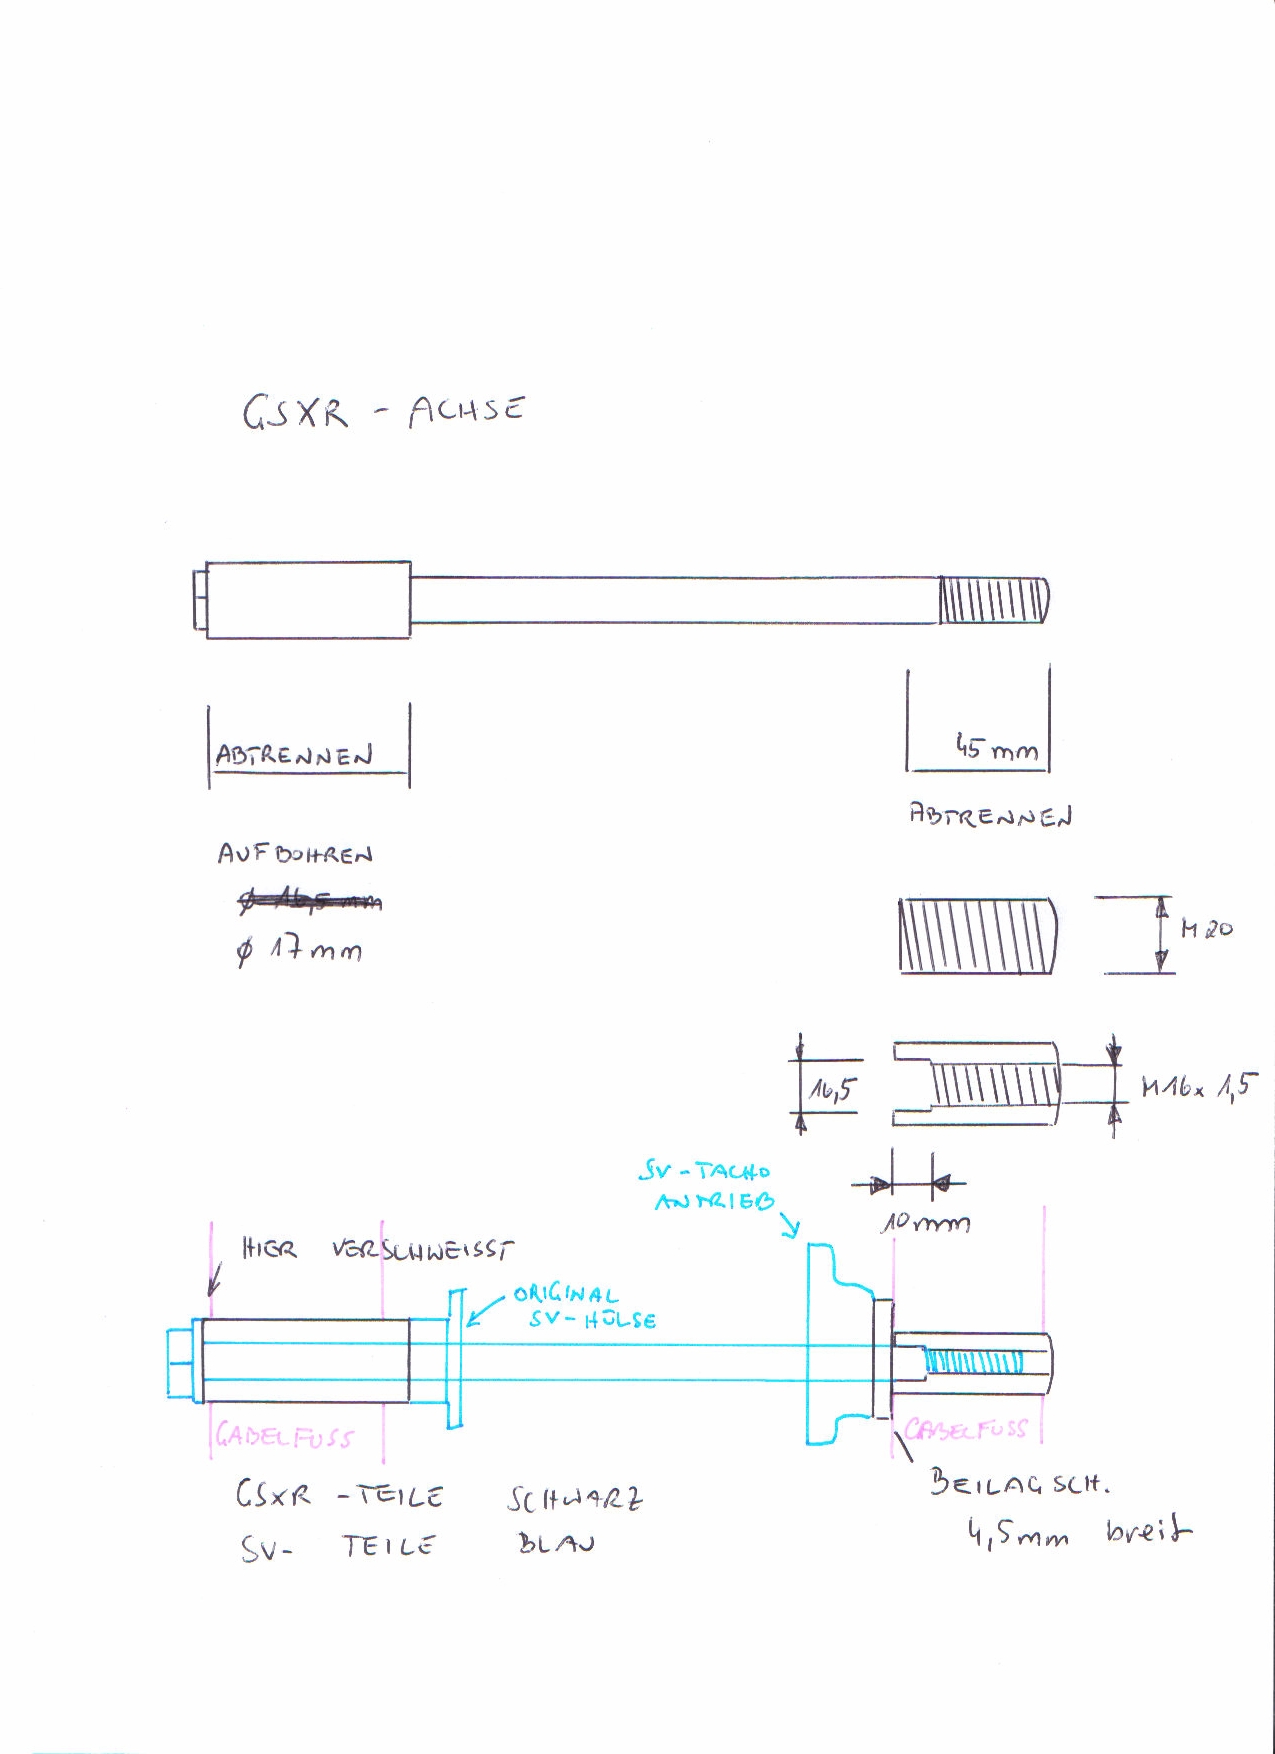 GSXR - ACHSE
ABTRENNEN
45 mm
ABTRENNEN
AUFBOHREN
ø 16,5 mm
ø 17 mm
M 20
16,5
M16 x 1,5
10 mm
SV - TACHO
ANTRIEB
HIER VERSCHWEISST
ORIGINAL
SV - HÜLSE
GABELFUSS
GABELFUSS
BEILAGSCH.
4,5mm breit
GSXR - TEILE SCHWARZ
SV- TEILE BLAU